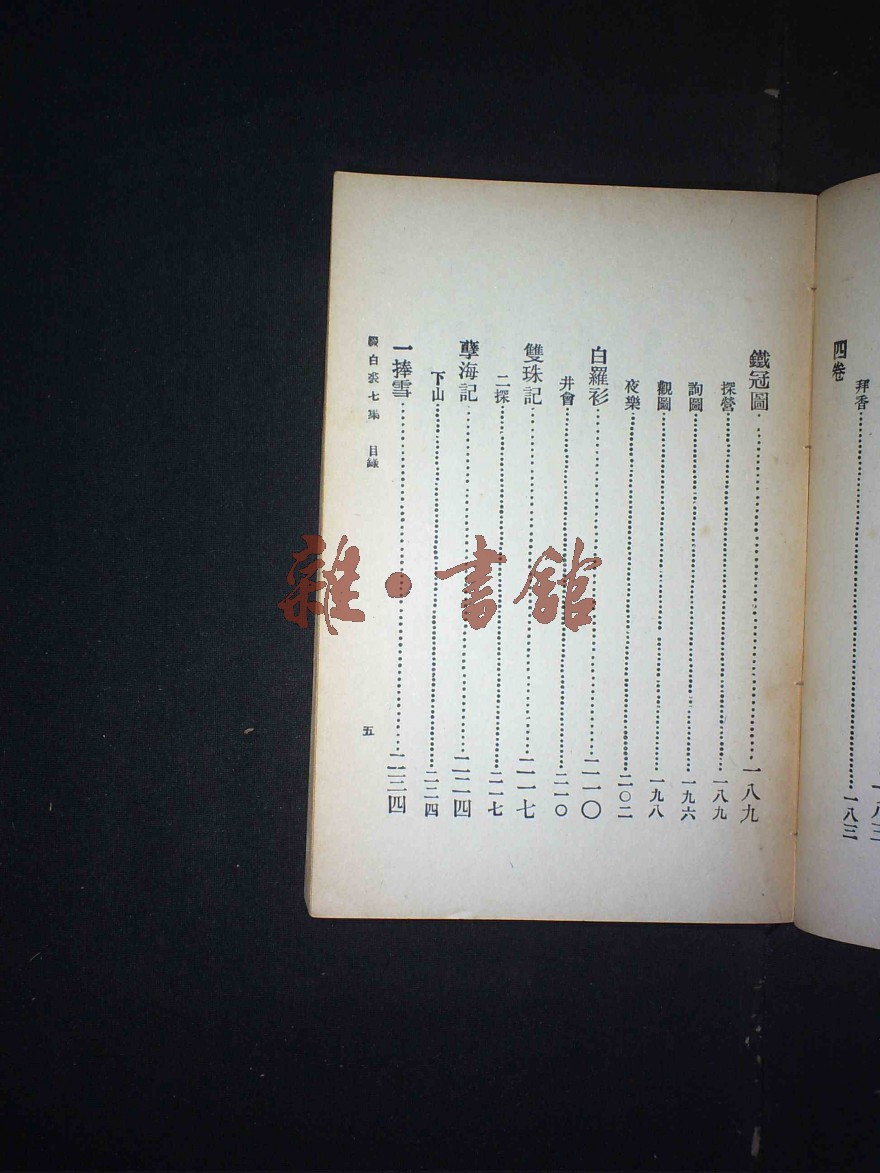 一八三
拜香……一八三
四卷
鐵冠圖……一八九
探營……一八九
詢圖……一九六
觀圖……一九八
夜樂……二〇二
白羅衫……二一〇
井會……二一〇
雙珠記……二一七
二探……二一七
孽海記……二二四
下山……二二四
一捧雪……二三四
綴白裘七集 目錄 五
雜·書館